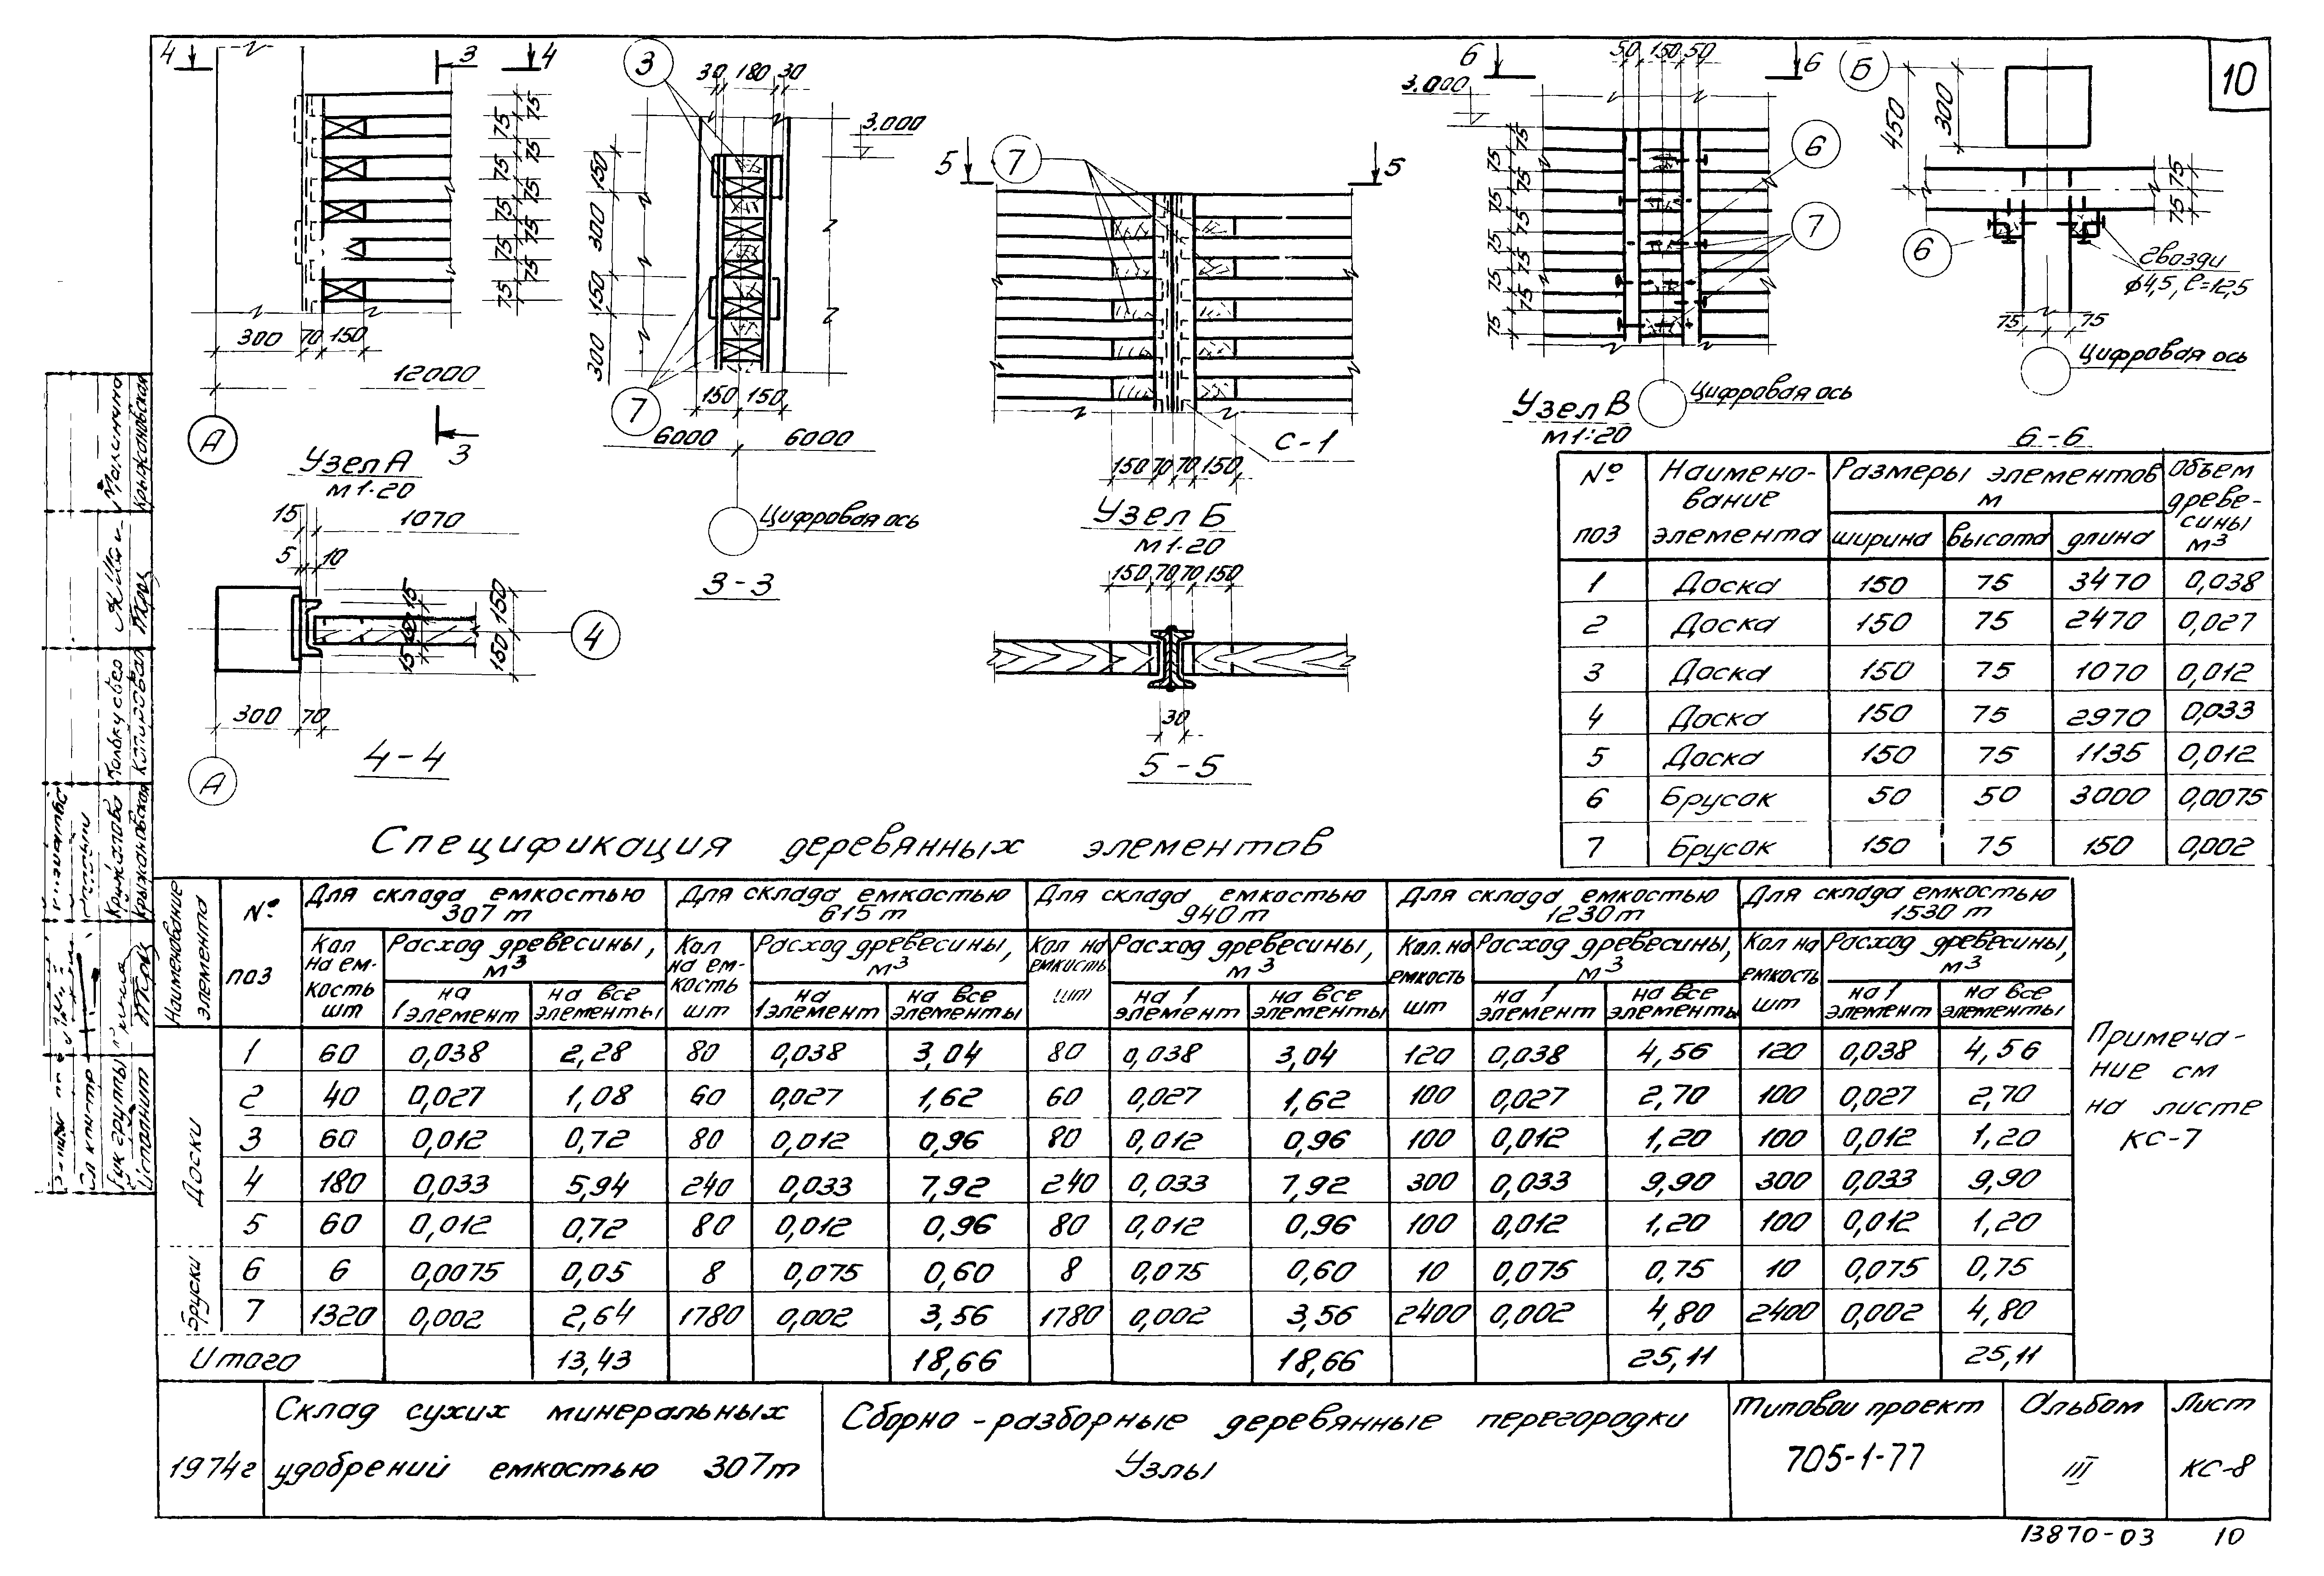 10
4 3 4
75 75 75 75 75 75 75 75 75 75
300 70 150
12000
А
3
Узел А
М 1:20
3
30 180 30
3.000
150 300 150 300
7
150 150
6000 6000
Цифровая ось
3-3
5 7 5
С-1
150 70 70 150
Узел Б
М 1:20
6 50 150 50 6
3.000
75 75 75 75 75 75 75 75 75 75
6
7
Узел В
М 1:20
Цифровая ось
Б
450 300
75 75
6
гвозди
ф4,5, l=12,5
75 75
Цифровая ось
6-6
15 1070
5 10
15 15
150 150
4
300 70
А
4-4
150 70 70 150
30
5-5
№ поз Наименование элемента Размеры элементов м Объем древесины м3
ширина высота длина
1 Доска 150 75 3470 0,038
2 Доска 150 75 2470 0,027
3 Доска 150 75 1070 0,012
4 Доска 150 75 2970 0,033
5 Доска 150 75 1135 0,012
6 Брусок 50 50 3000 0,0075
7 Брусок 150 75 150 0,002
Спецификация деревянных элементов
Наименование элемента № поз Для склада емкостью 307 т Для склада емкостью 615 т Для склада емкостью 940 т Для склада емкостью 1230 т Для склада емкостью 1530 т
Кол на емкость шт Расход древесины, м3 Кол на емкость шт Расход древесины, м3 Кол на емкисть шт Расход древесины, м3 Кол. на емкость шт Расход древесины, м3 Кол на емкость шт Расход древесины, м3
на 1 элемент на все элементы на 1 элемент на все элементы на 1 элемент на все элементы на 1 элемент на все элементы на 1 элемент на все элементы
Доски
1 60 0,038 2,28 80 0,038 3,04 80 0,038 3,04 120 0,038 4,56 120 0,038 4,56
2 40 0,027 1,08 60 0,027 1,62 60 0,027 1,62 100 0,027 2,70 100 0,027 2,70
3 60 0,012 0,72 80 0,012 0,96 80 0,012 0,96 100 0,012 1,20 100 0,012 1,20
4 180 0,033 5,94 240 0,033 7,92 240 0,033 7,92 300 0,033 9,90 300 0,033 9,90
5 60 0,012 0,72 80 0,012 0,96 80 0,012 0,96 100 0,012 1,20 100 0,012 1,20
Бруски
6 6 0,0075 0,05 8 0,075 0,60 8 0,075 0,60 10 0,075 0,75 10 0,075 0,75
7 1320 0,002 2,64 1780 0,002 3,56 1780 0,002 3,56 2400 0,002 4,80 2400 0,002 4,80
Итого 13,43 18,66 18,66 25,11 25,11
Примеча-
ние см
на листе
КС-7
1974г
Склад сухих минеральных
удобрений емкостью 307т
Сборно-разборные деревянные перегородки
Узлы
Типовой проект
705-1-77
Альбом
III
Лист
КС-8
13870-03 10
Рук группы
Исполнит
Копировал
Крыжановская
Крыжановская